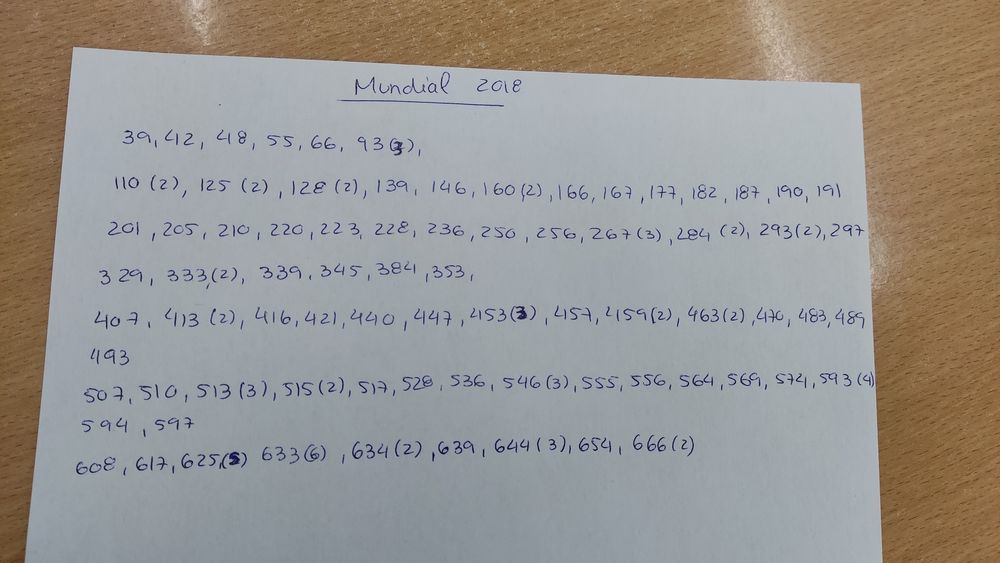 Mundial 2018
39, 42, 48, 55, 66, 93(3),
110 (2), 125 (2), 128 (2), 139, 146, 160(2), 166, 167, 177, 182, 187, 190, 191
201, 205, 210, 220, 223, 228, 236, 250, 256, 267(3), 284 (2), 293(2), 297
329, 333(2), 339, 345, 384, 353,
407, 413 (2), 416, 421, 440, 447, 453(3), 457, 459(2), 463(2), 470, 483, 489
493
507, 510, 513(3), 515(2), 517, 528, 536, 546(3), 555, 556, 564, 569, 574, 593(4)
594, 597
608, 617, 625,(5) 633(6), 634(2), 639, 644(3), 654, 666(2)